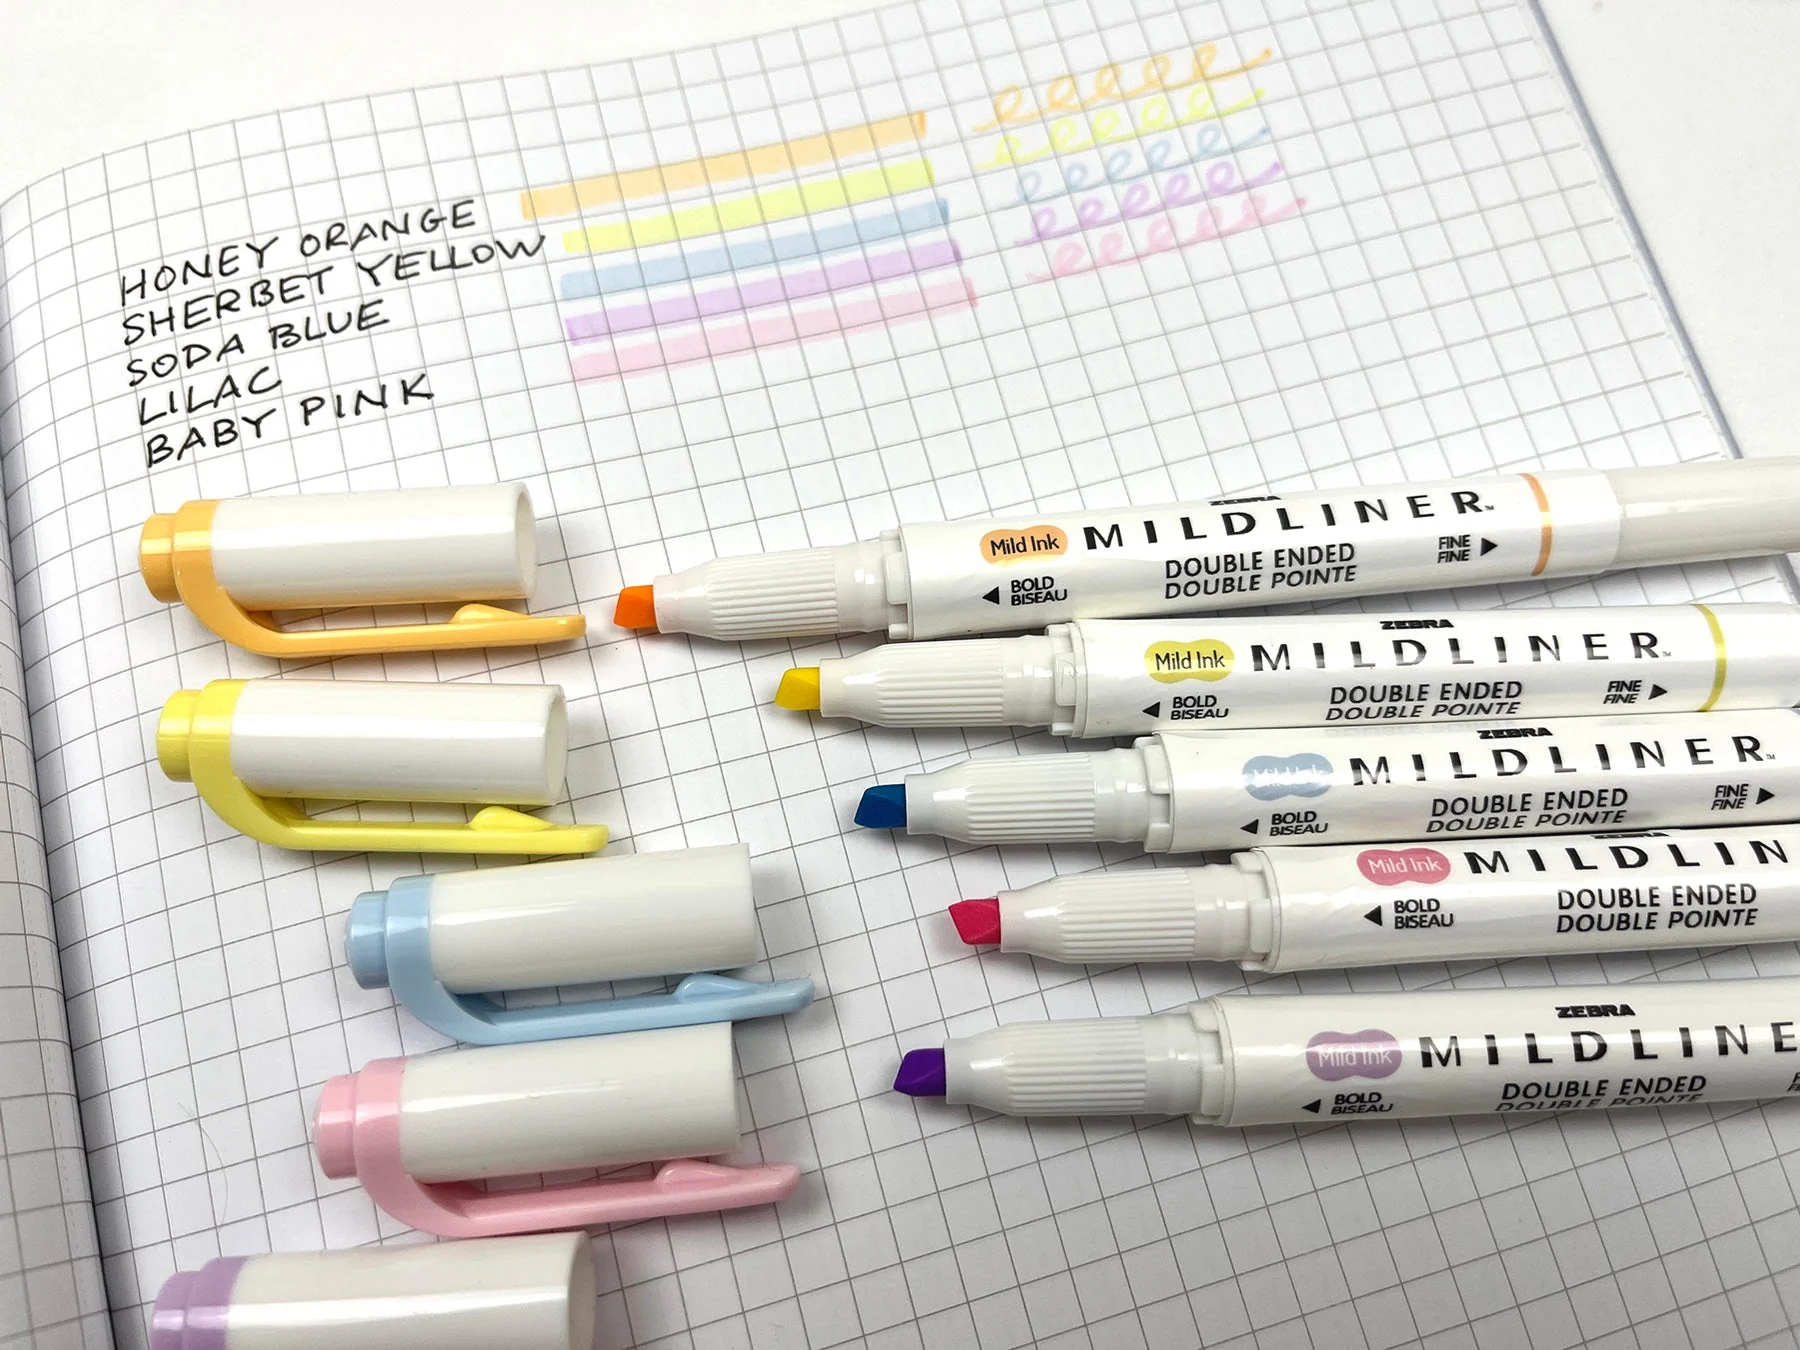 HONEY ORANGE
SHERBET YELLOW
SODA BLUE
LILAC
BABY PINK
ZEBRA
Mild Ink MILDLINER™
DOUBLE ENDED
DOUBLE POINTE
◀ BOLD
BISEAU
FINE ▶
FINE
ZEBRA
Mild Ink MILDLINER™
DOUBLE ENDED
DOUBLE POINTE
◀ BOLD
BISEAU
FINE ▶
FINE
ZEBRA
Mild Ink MILDLINER™
DOUBLE ENDED
DOUBLE POINTE
◀ BOLD
BISEAU
FINE ▶
FINE
ZEBRA
Mild Ink MILDLIN
DOUBLE ENDED
DOUBLE POINTE
◀ BOLD
BISEAU
ZEBRA
Mild Ink MILDLINE
DOUBLE ENDED
DOUBLE POINTE
◀ BOLD
BISEAU